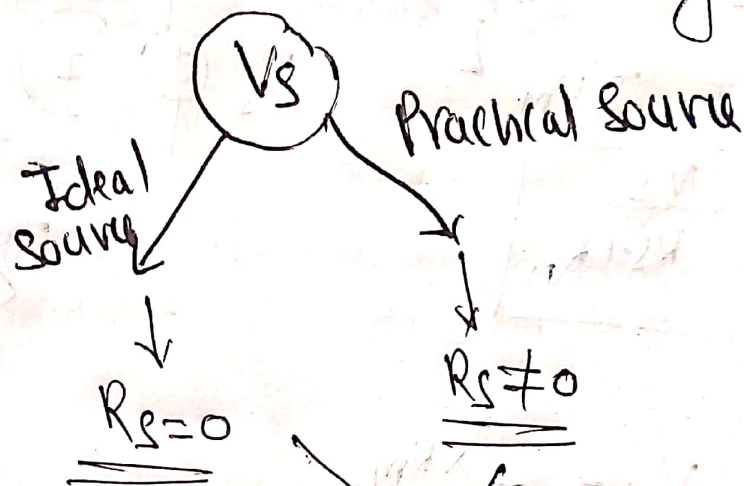 Vs
Practical Source
Ideal
Source
Rs≠0
Rs=0